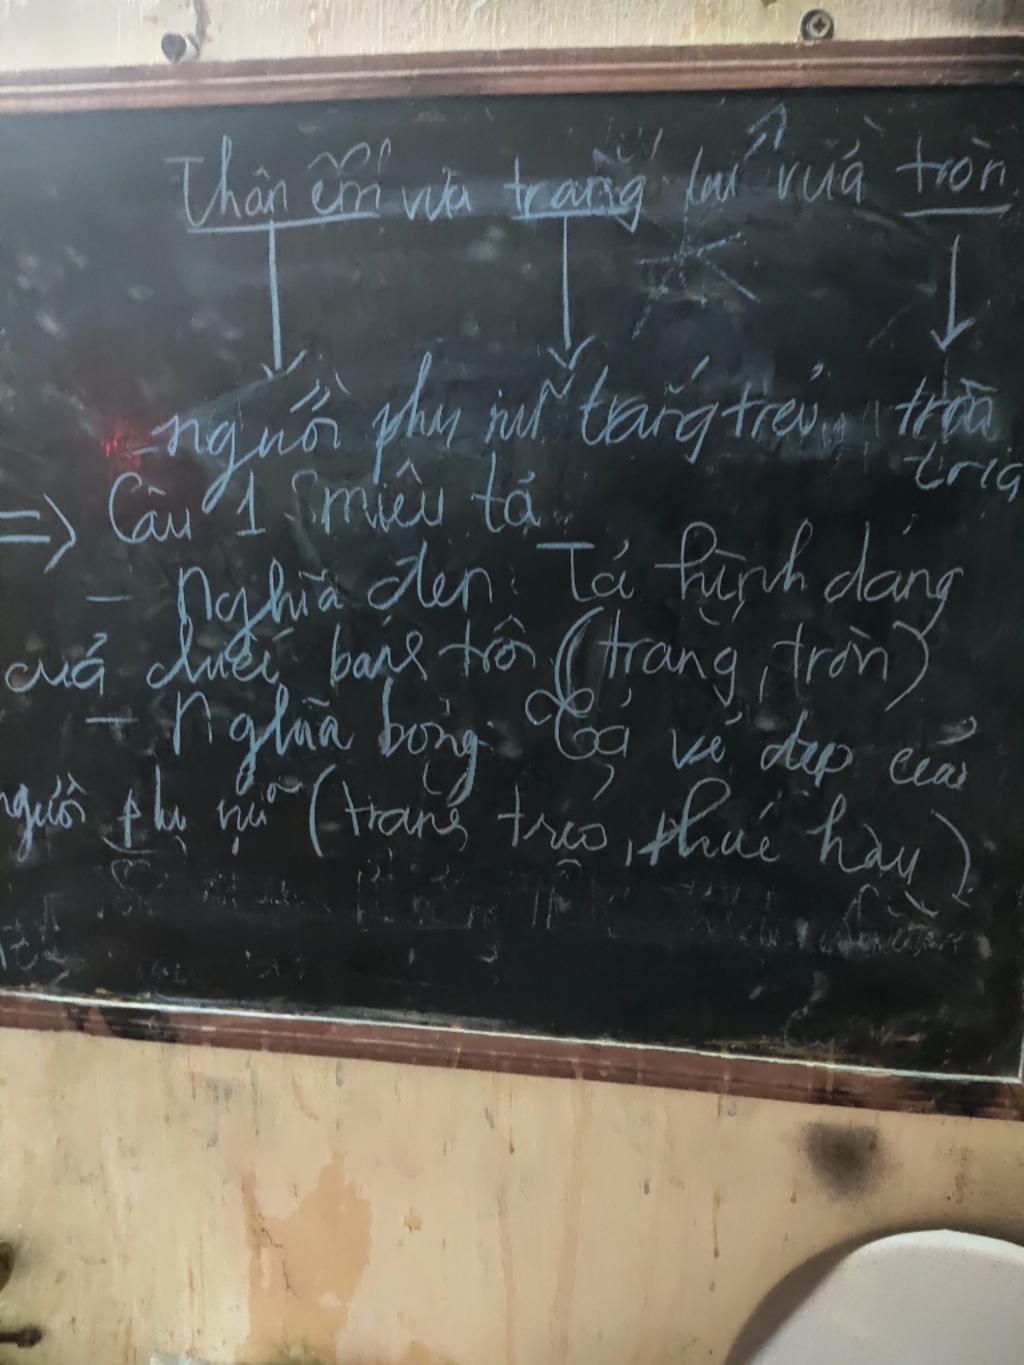 Thân em vừa trắng lại vừa tròn
- người phụ nữ trắng trẻo, tròn
trịa
=> Câu 1 miêu tả
- Nghĩa đen: Tả hình dáng
của chiếc bánh trôi (trắng, tròn)
- Nghĩa bóng: Tả vẻ đẹp của
người phụ nữ (trắng trẻo, phúc hậu)